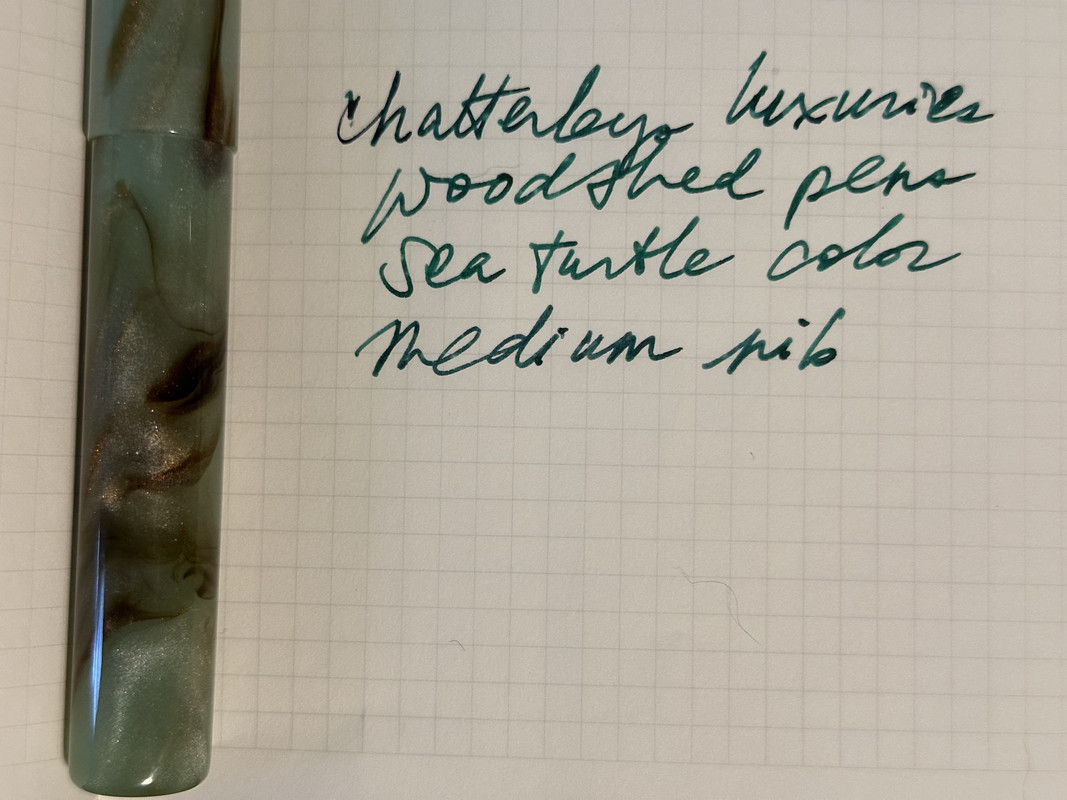 Chatterleys luxuries
woodshed pens
Sea turtle color
Medium nib